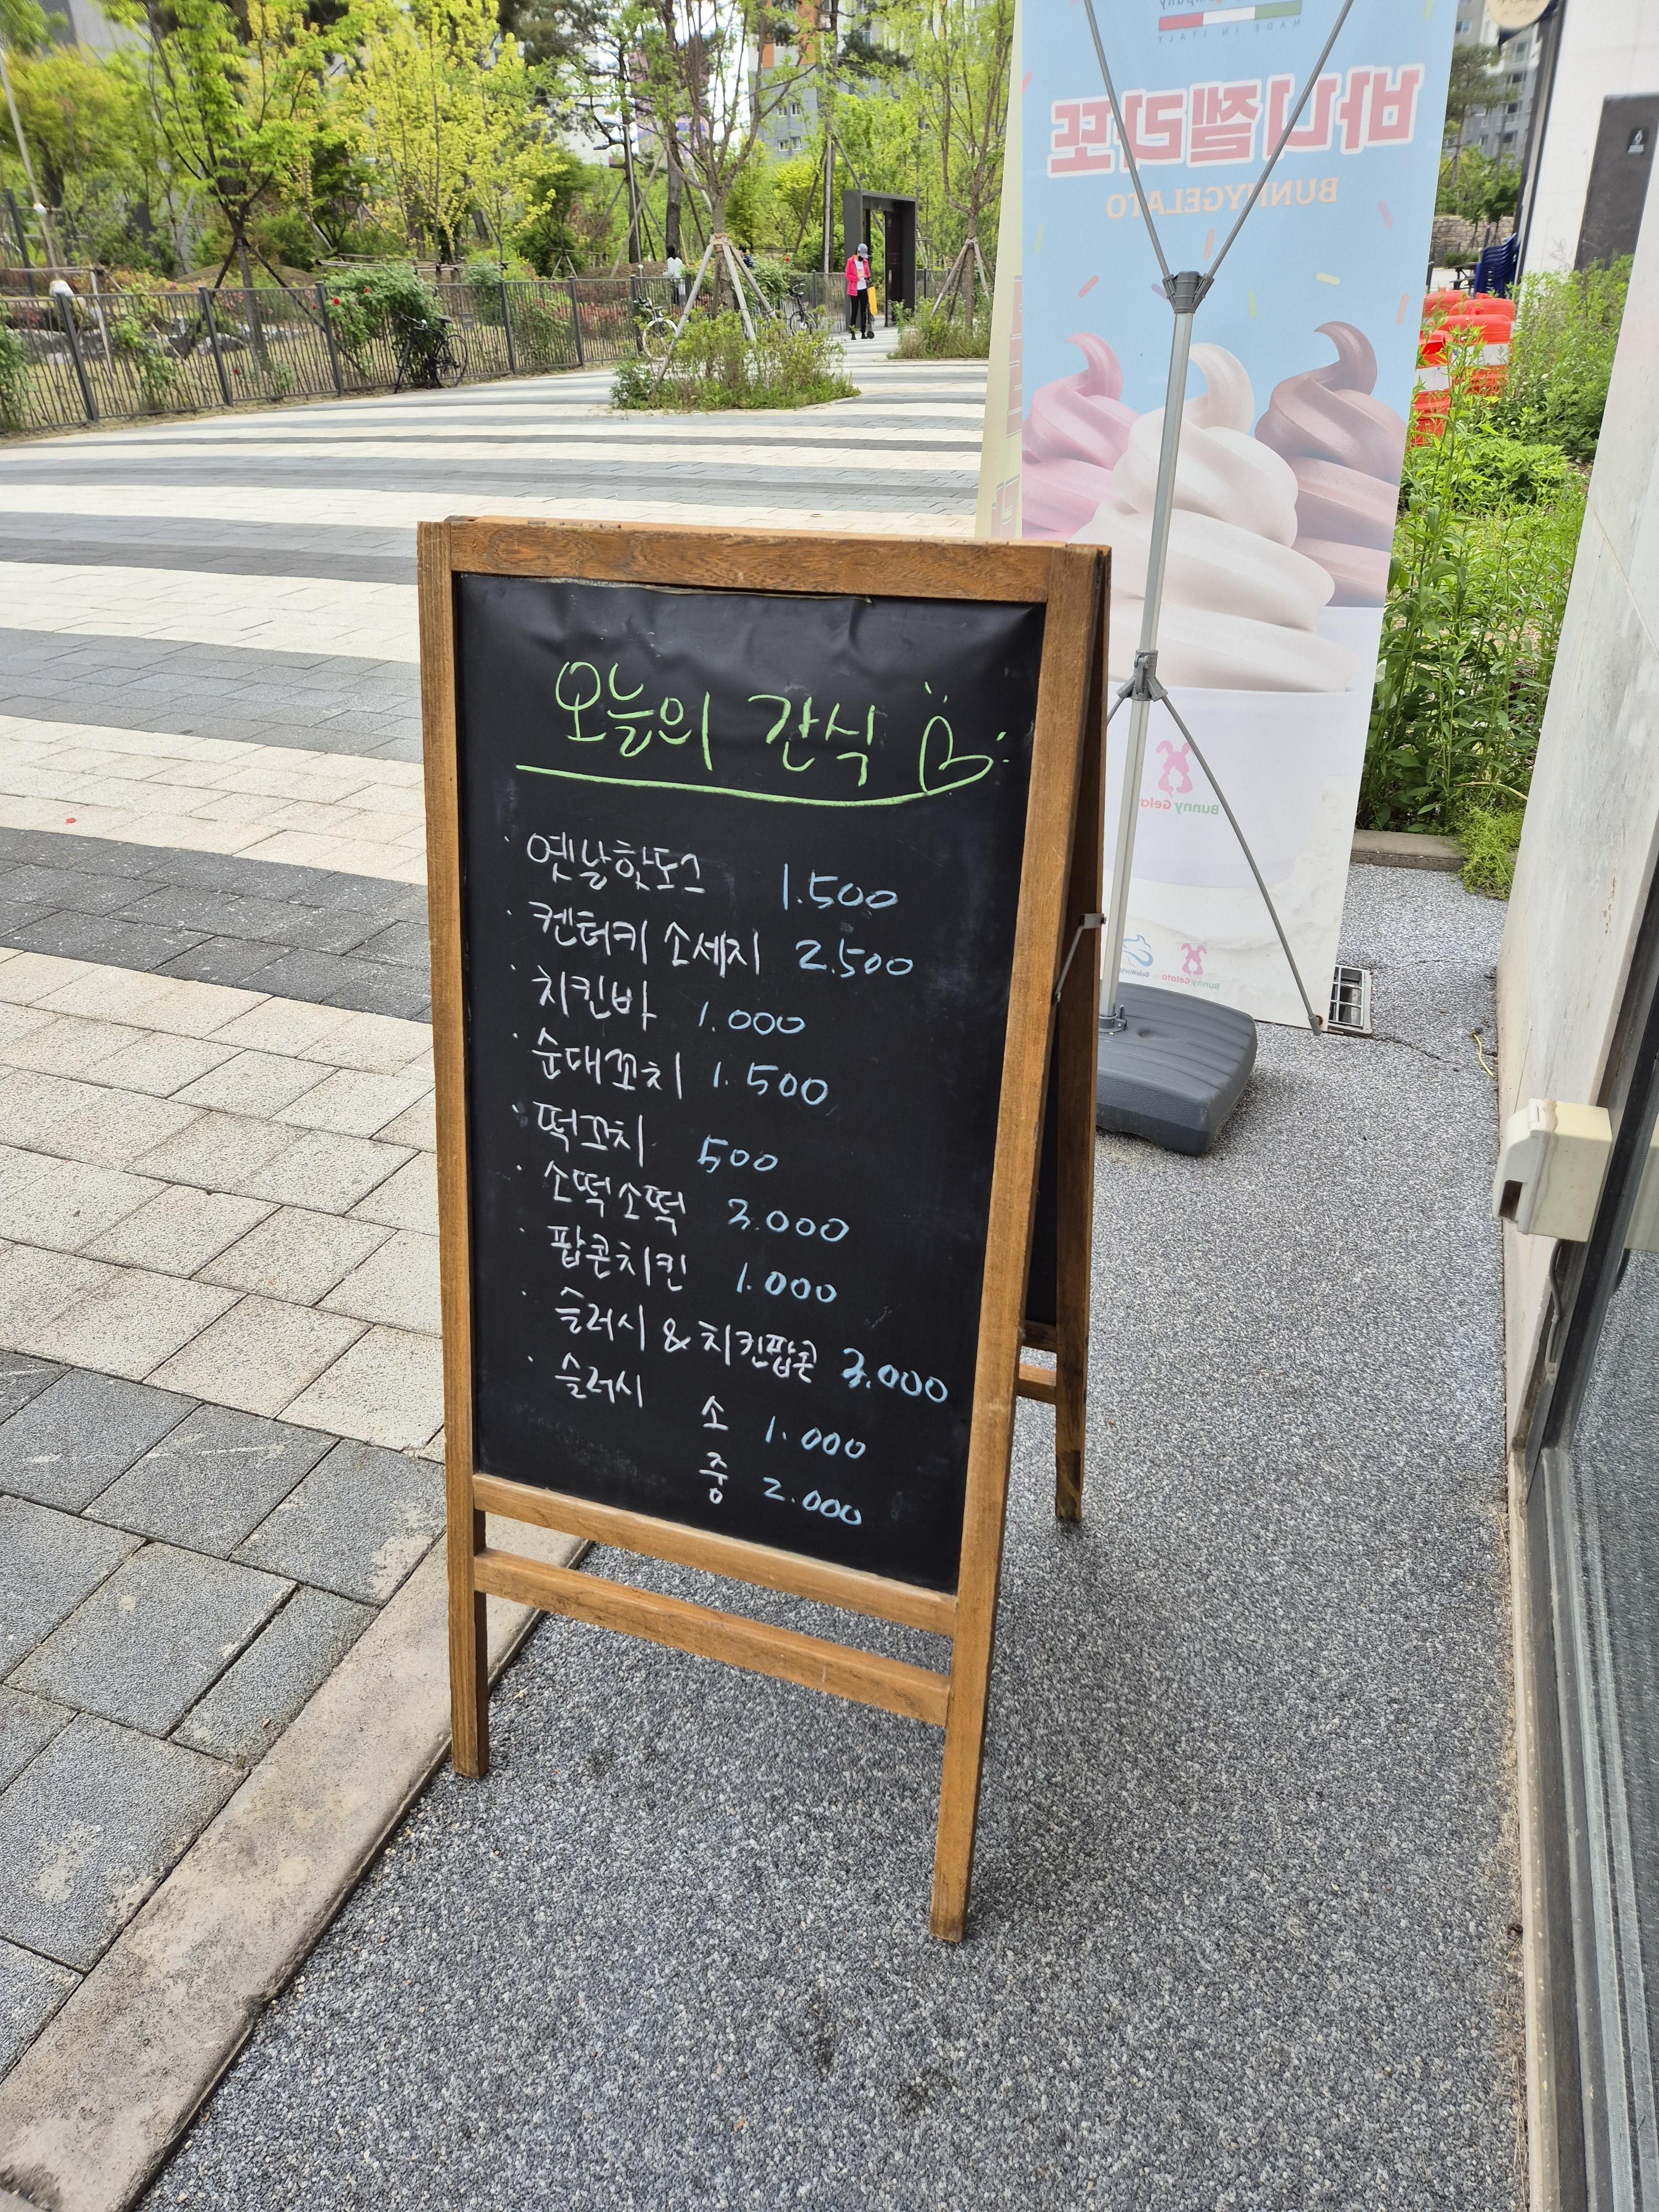 오늘의 간식
· 옛날핫도그 1.500
· 켄터키 소세지 2.500
· 치킨바 1.000
· 순대꼬치 1.500
· 떡꼬치 500
· 소떡소떡 2.000
· 팝콘치킨 1.000
· 슬러시 & 치킨팝콘 3.000
· 슬러시 소 1.000
중 2.000
MADE IN ITALY
바니젤라또
BUNNYGELATO
Bunny Gelato
Bunny Gelato